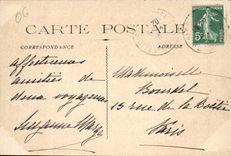 06
CARTE POSTALE
CORRESPONDANCE
ADRESSE
5c
affectueuses
amitiés de
deux voyageurs
Suzanne
Mademoiselle
13 rue de la Boétie
Paris